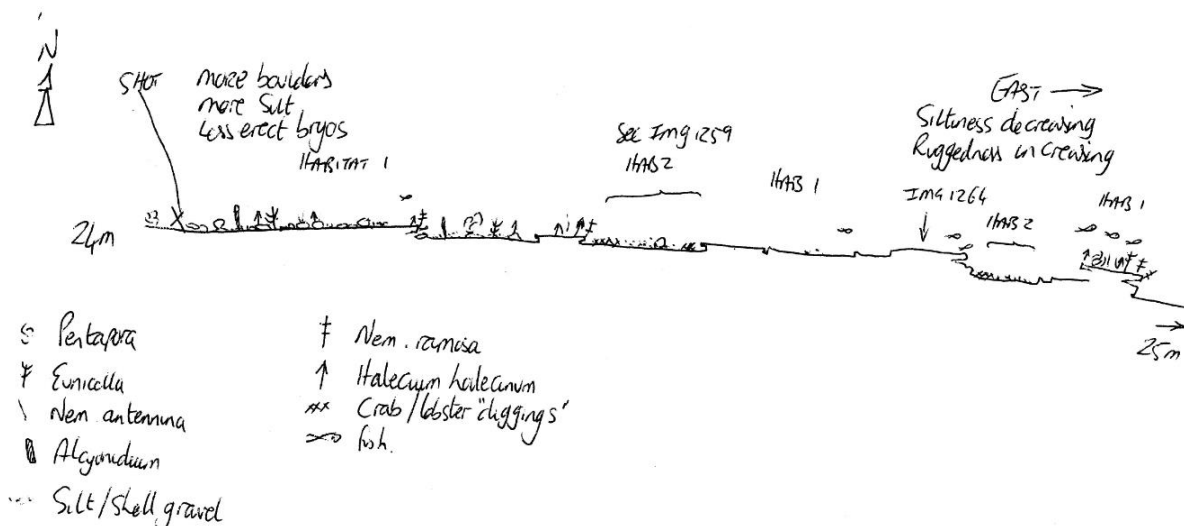 N
SHOT
more boulders
more Silt
Less erect bryos
HABITAT 1
See Img 1259
HAB 2
HAB 1
EAST
Siltiness decreasing
Ruggedness increasing
IMG 1264
HAB 2
HAB 1
24m
25m
Pentapora
Eunicella
Nem antennina
Alcyonidium
Silt/Shell gravel
Nem. ramosa
Halecium halecinum
Crab/lobster "diggings"
fish.